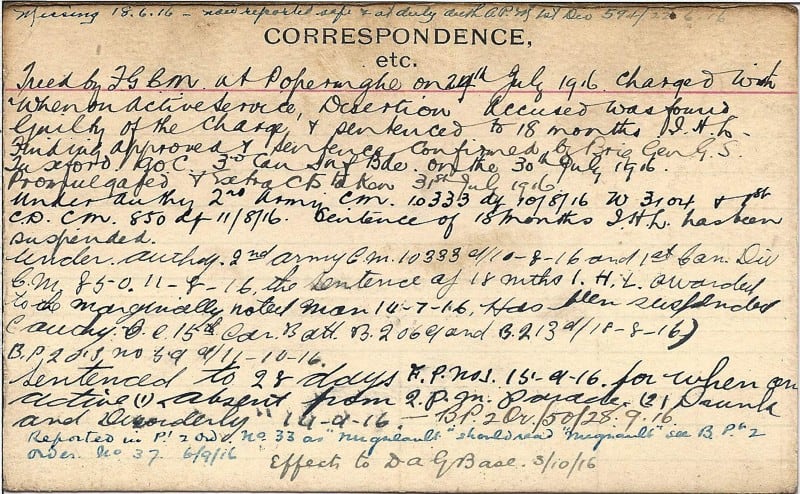 Missing 18.6.16 – now reported safe & at duty auth A.P.M 1st Div 594/22.6.16
CORRESPONDENCE,
etc.
Tried by F.G.C.M. at Poperinghe on 24th July 1916. Charged with
"When on Active Service, Desertion" Accused was found
Guilty of the Charge, & sentenced to 18 months I.H.L.
Finding approved & sentence confirmed by Brig Gen G.S.
Tuxford. G.O.C. 3rd Can Inf Bde. on the 30th July 1916.
Promulgated & Extracts taken 31st July 1916.
Under authy 2nd Army C.M. 10333 dy 10/8/16 W 3104 & 1st
C.D. C.M. 850 df 11/8/16. Sentence of 18 months I.H.L. has been
suspended.
Under. authy. 2nd army C.m. 10333 d/10-8-16 and 1st Can. Div
C.M. 85-0. 11-8-16, the sentence of 18 mths I.H.L. awarded
to the marginally noted man 14-7-16. Has been suspended
(authy. O.C. 15th Can. Batt. B. 2069 and B. 213 d/18-8-16)
B.P. 2 no 59 d/11-10-16.
Sentenced to 28 days F.P. No 1. 15-9-16. for when on
active (1) absent from 2.P.m. parade. (2) Drunk
and Disorderly" 14-9-16. – B.P. 2 Or/50/28.9.16.
Reported in Pt 2 ord. No. 33 as "Migneault" should read "Mignault" see B. Pt 2
order. No 37. 6/9/16
Effects to D.A.G Base. 3/10/16